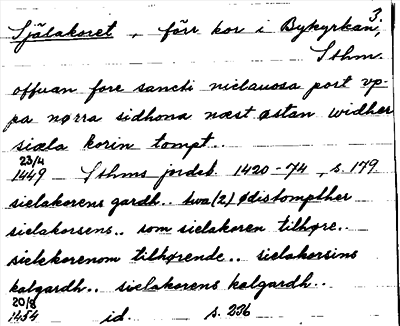 3.
Själakoret, förr kor i Bykyrkan,
Sthm.
offuan fore sancti niclauosa port vp-
pa nørra sidhona næst østan widher
siæla korin tompt..
23/4
1449 Sthms jordeb. 1420-74, s. 179
sielakorens gardh.. twa (2) ødistompther
sielakorsens.. som sielakoren tilhøre..
sielekorenom tilhørende.. sielakorsins
kalgardh.. sielakorens kalgardh..
20/8
1454 id. s. 236